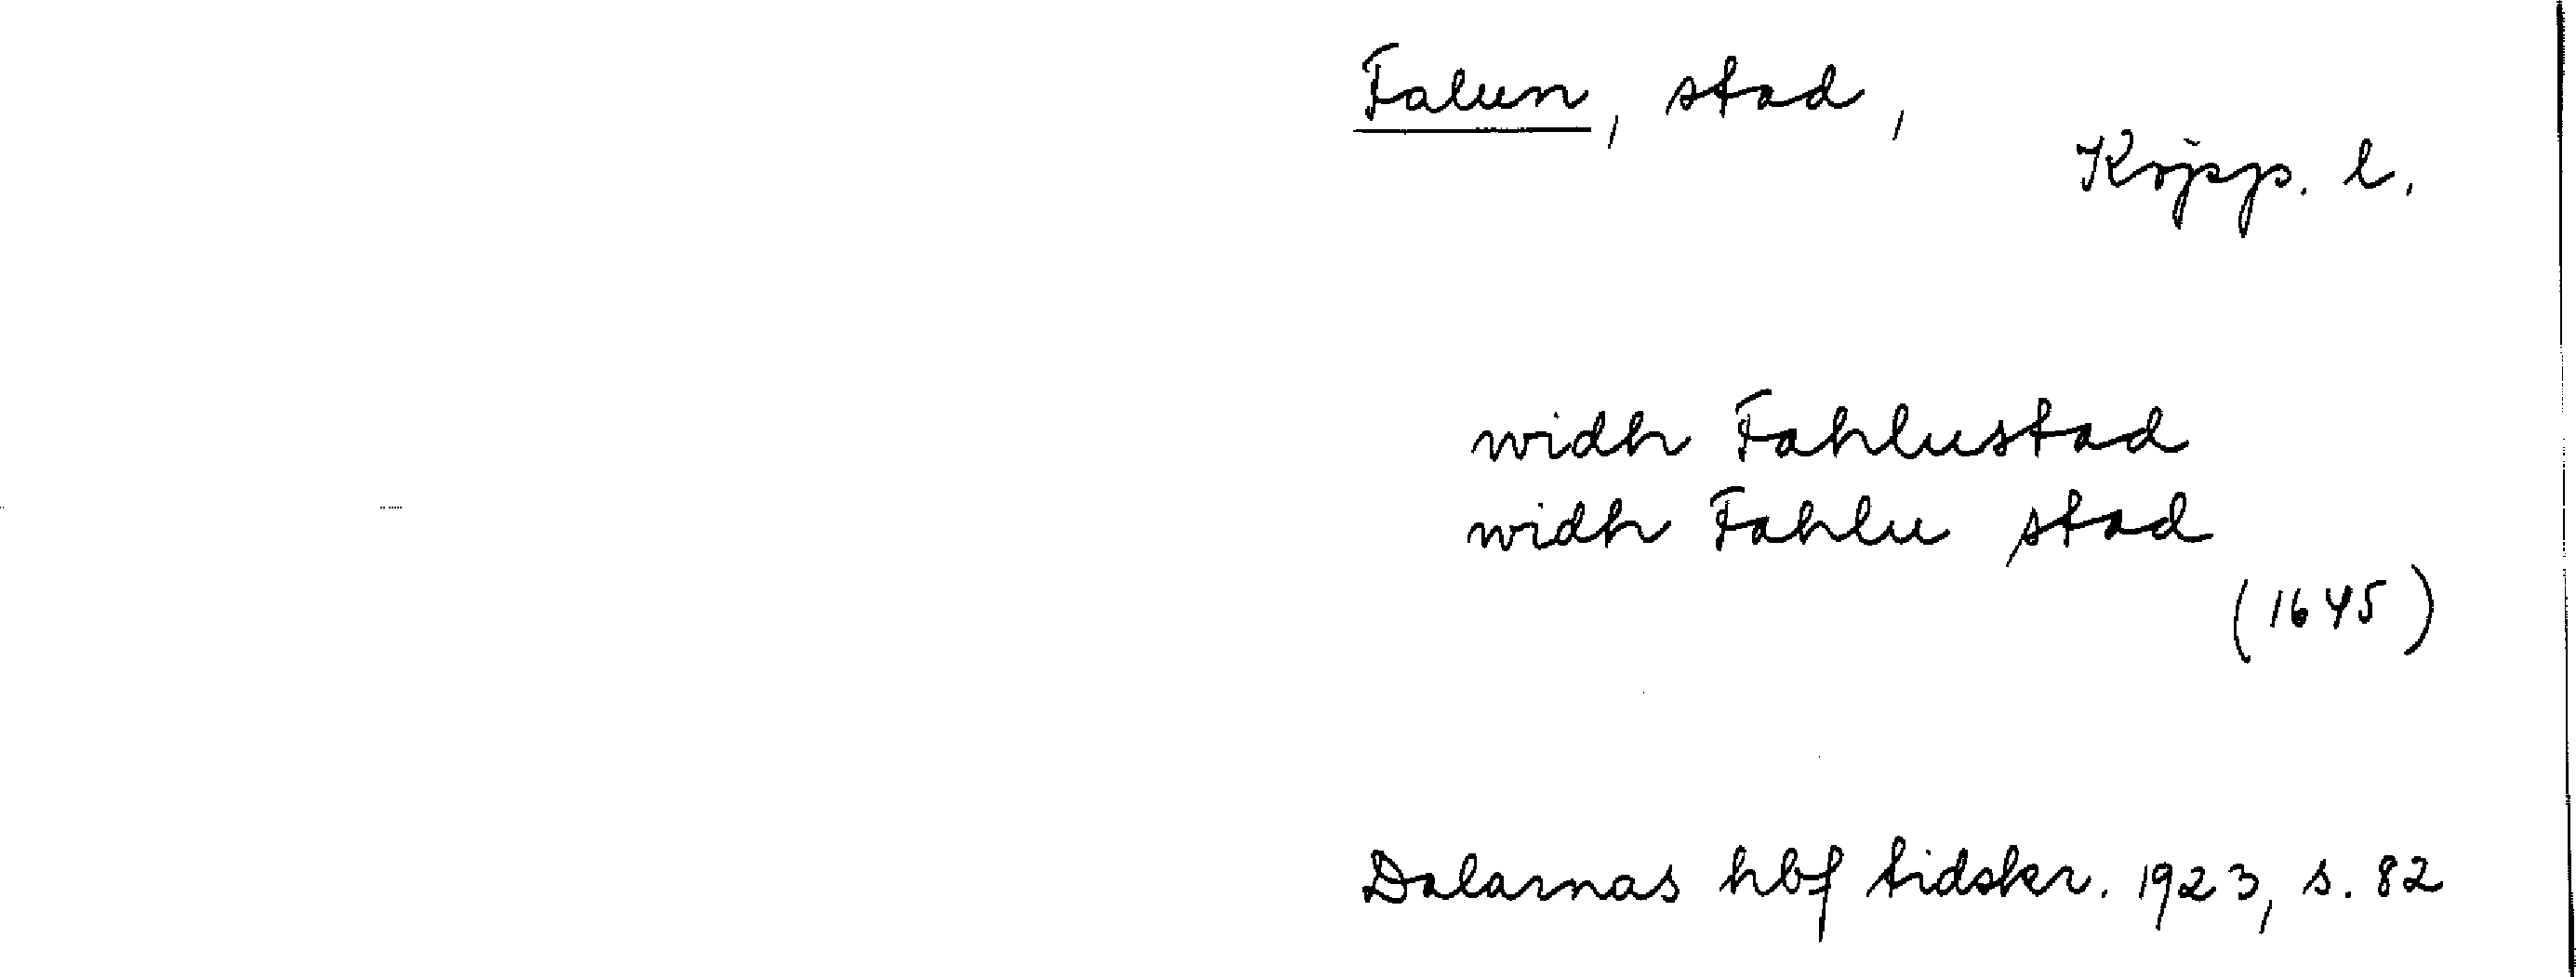 Falun, stad,
Kopp. l.
widh Fahlustad
widh Fahlu stad
(1645)
Dalarnas hbf tidskr. 1923, s. 82